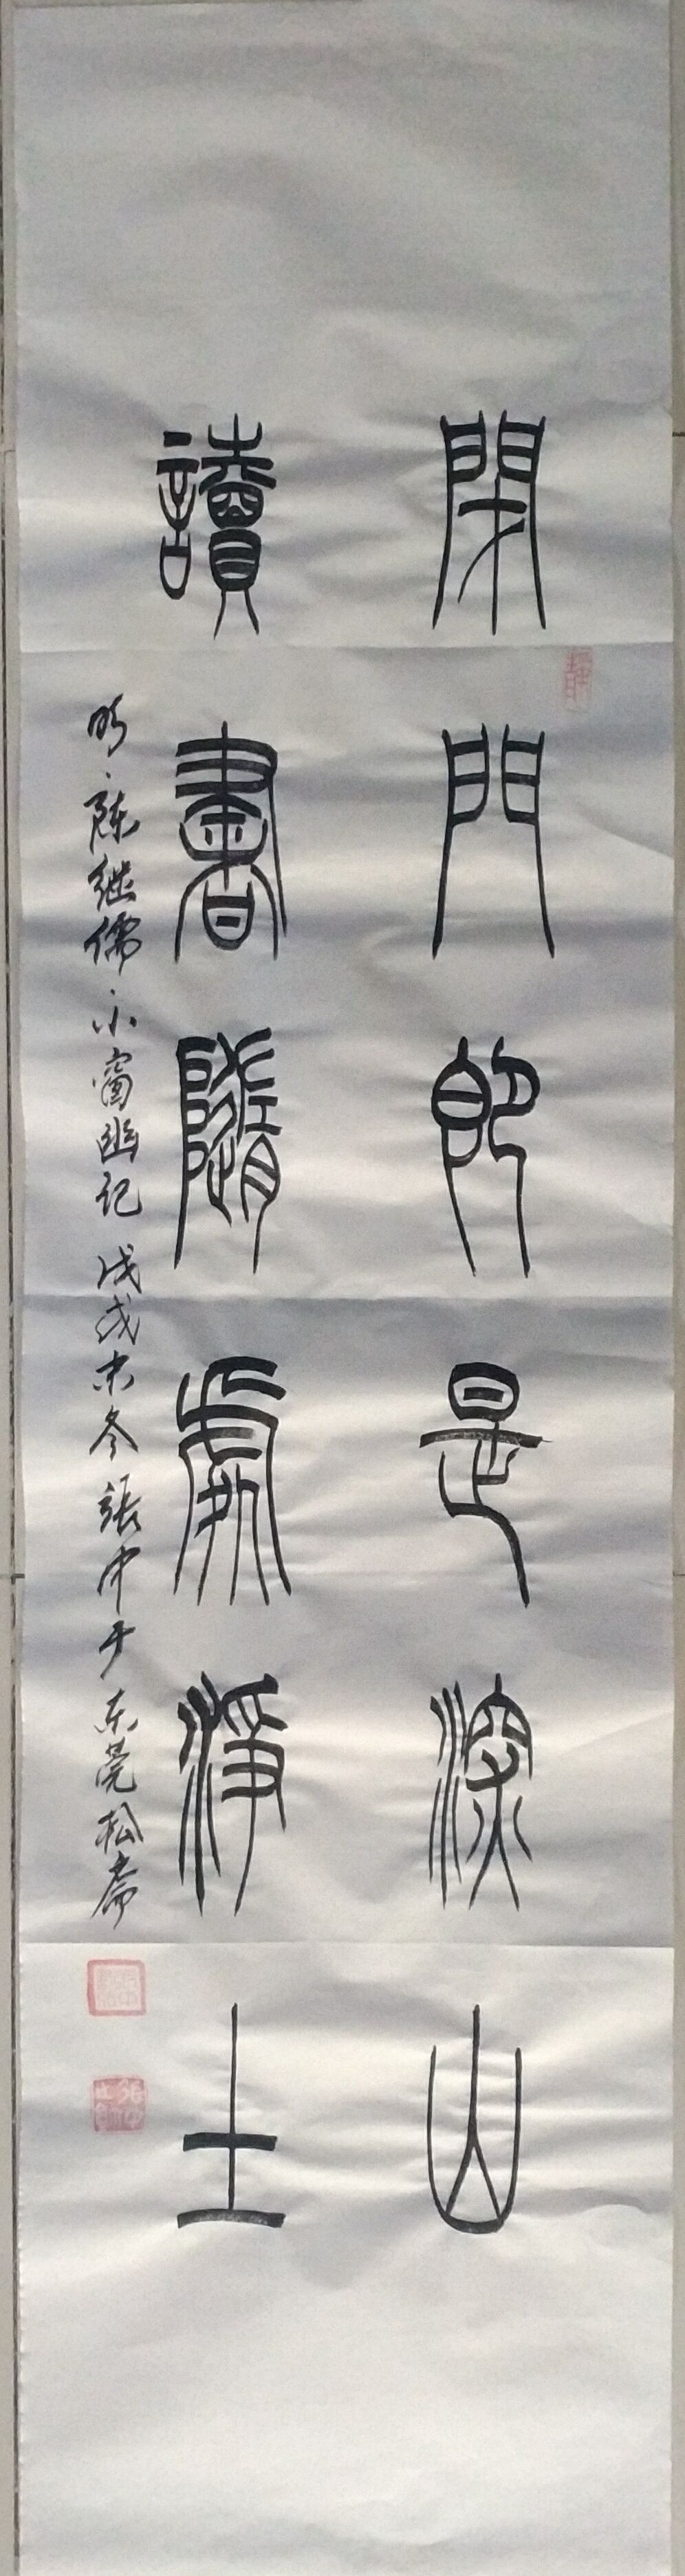 閉門即是深山
讀書隨處淨土
明·陈继儒·小窗幽记 戊戌末冬 張中于东莞松斋